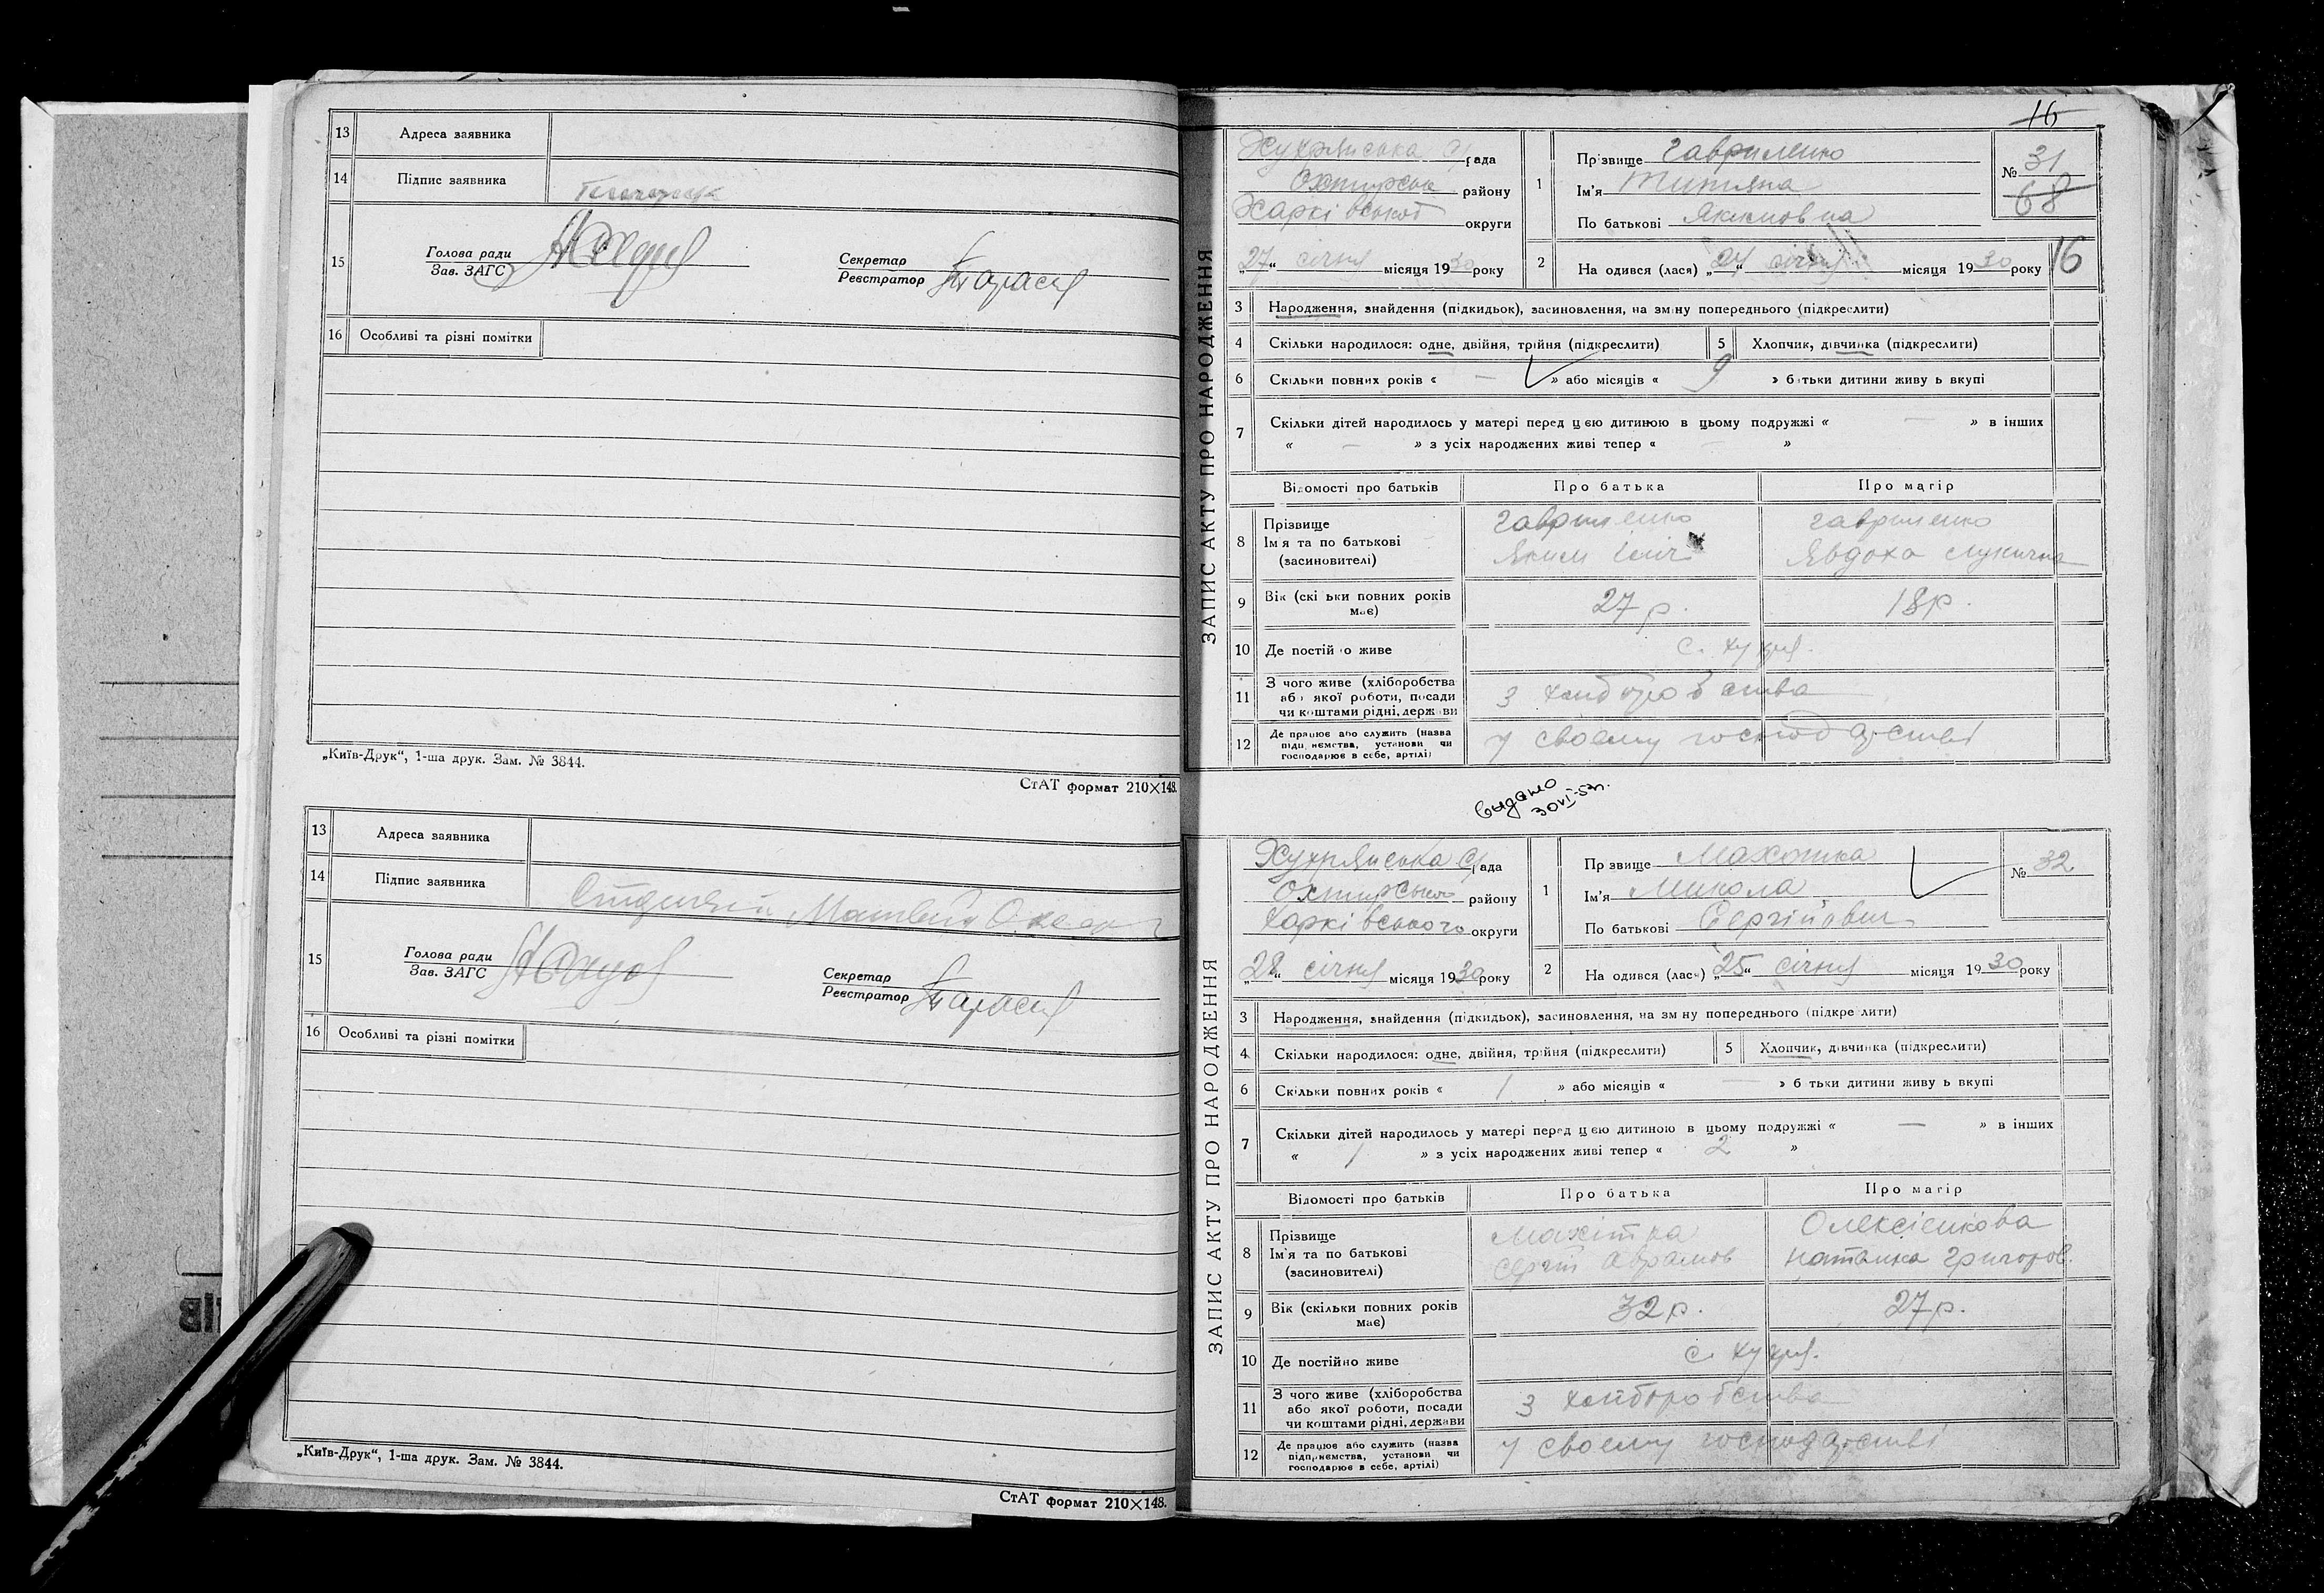 13 Адреса заявника
14 Підпис заявника
15 Голова ради
Зав. ЗАГС
Секретар
Реєстратор Тарасия
16 Особливі та різні помітки
„Київ-Друк“, 1-ша друк. Зам. № 3844.
СтАТ формат 210×148.
13 Адреса заявника
14 Підпис заявника
15 Голова ради
Зав. ЗАГС
Секретар
Реєстратор
16 Особливі та різні помітки
„Київ-Друк“, 1-ша друк. Зам. № 3844.
СтАТ формат 210×148.
16
ЗАПИС АКТУ ПРО НАРОДЖЕННЯ
Хухрянська с/рада
Охтирськ району
Харківської округи
„27“ січня місяця 1930 року
1 Прізвище Гавриленко
Ім'я Титяна
По батькові Якимовна
№ 31
68
2 На одився (лася) „24“ січня місяця 1930 року
16
3 Народження, знайдення (підкидьок), засиновлення, на зм ну попереднього (підкреслити)
4 Скільки народилося: одне, двійня, трійня (підкреслити)
5 Хлопчик, дівчинка (підкреслити)
6 Скільки повних років « — » або місяців « 9 » б тьки дитини живу ь вкупі
7 Скільки дітей народилось у матері перед цією дитиною в цьому подружжі « — » в інших
« — » з усіх народжених живі тепер « — »
Відомості про батьків Про батька Про матір
8 Прізвище Гавриленко Гавриленко
Ім я та по батькові Яким Ілліч Явдоха Лукична
(засиновителі)
9 Вік (скі ьки повних років має) 27 р. 18 р.
10 Де постій о живе с. Хухря.
11 З чого живе (хліборобства або якої роботи, посади чи коштами рідні, держ ви З хліборобства
12 Де працює або служить (назва підп иємства, установи чи господарює в себе, артілі) У своему господарстві
выдано
30 VI-57г.
ЗАПИС АКТУ ПРО НАРОДЖЕННЯ
Хухрянська с/рада
Охтирського району
Харківського округи
„28“ січня місяця 1930 року
1 Пр звище Махотка
Ім'я Микола
По батькові Сергійович
№ 32
2 На одився (лася) „25“ січня місяця 1930 року
3 Народження, знайдення (підкидьок), засиновлення, на зм ну попереднього (підкре лити)
4 Скільки народилося: одне, двійня, трійня (підкреслити)
5 Хлопчик, дівчинка (підкреслити)
6 Скільки повних років « 1 » або місяців « — » б тьки дитини живу ь вкупі
7 Скільки дітей народилось у матері перед цією дитиною в цьому подружжі « — » в інших
« 1 » з усіх народжених живі тепер « 2 »
Відомості про батьків Про батька Про матір
8 Прізвище Махітка Олексієнкова
Ім'я та по батькові Сергій Аврамов Наталка Григоров.
(засиновителі)
9 Вік (скільки повних років має) 32 р. 27 р.
10 Де постійно живе с. Хухря.
11 З чого живе (хліборобства або якої роботи, посади чи коштами рідні, держави З хліборобства
12 Де працює або служить (назва підприємства, установи чи господарює в себе, артілі) У своему господарстві